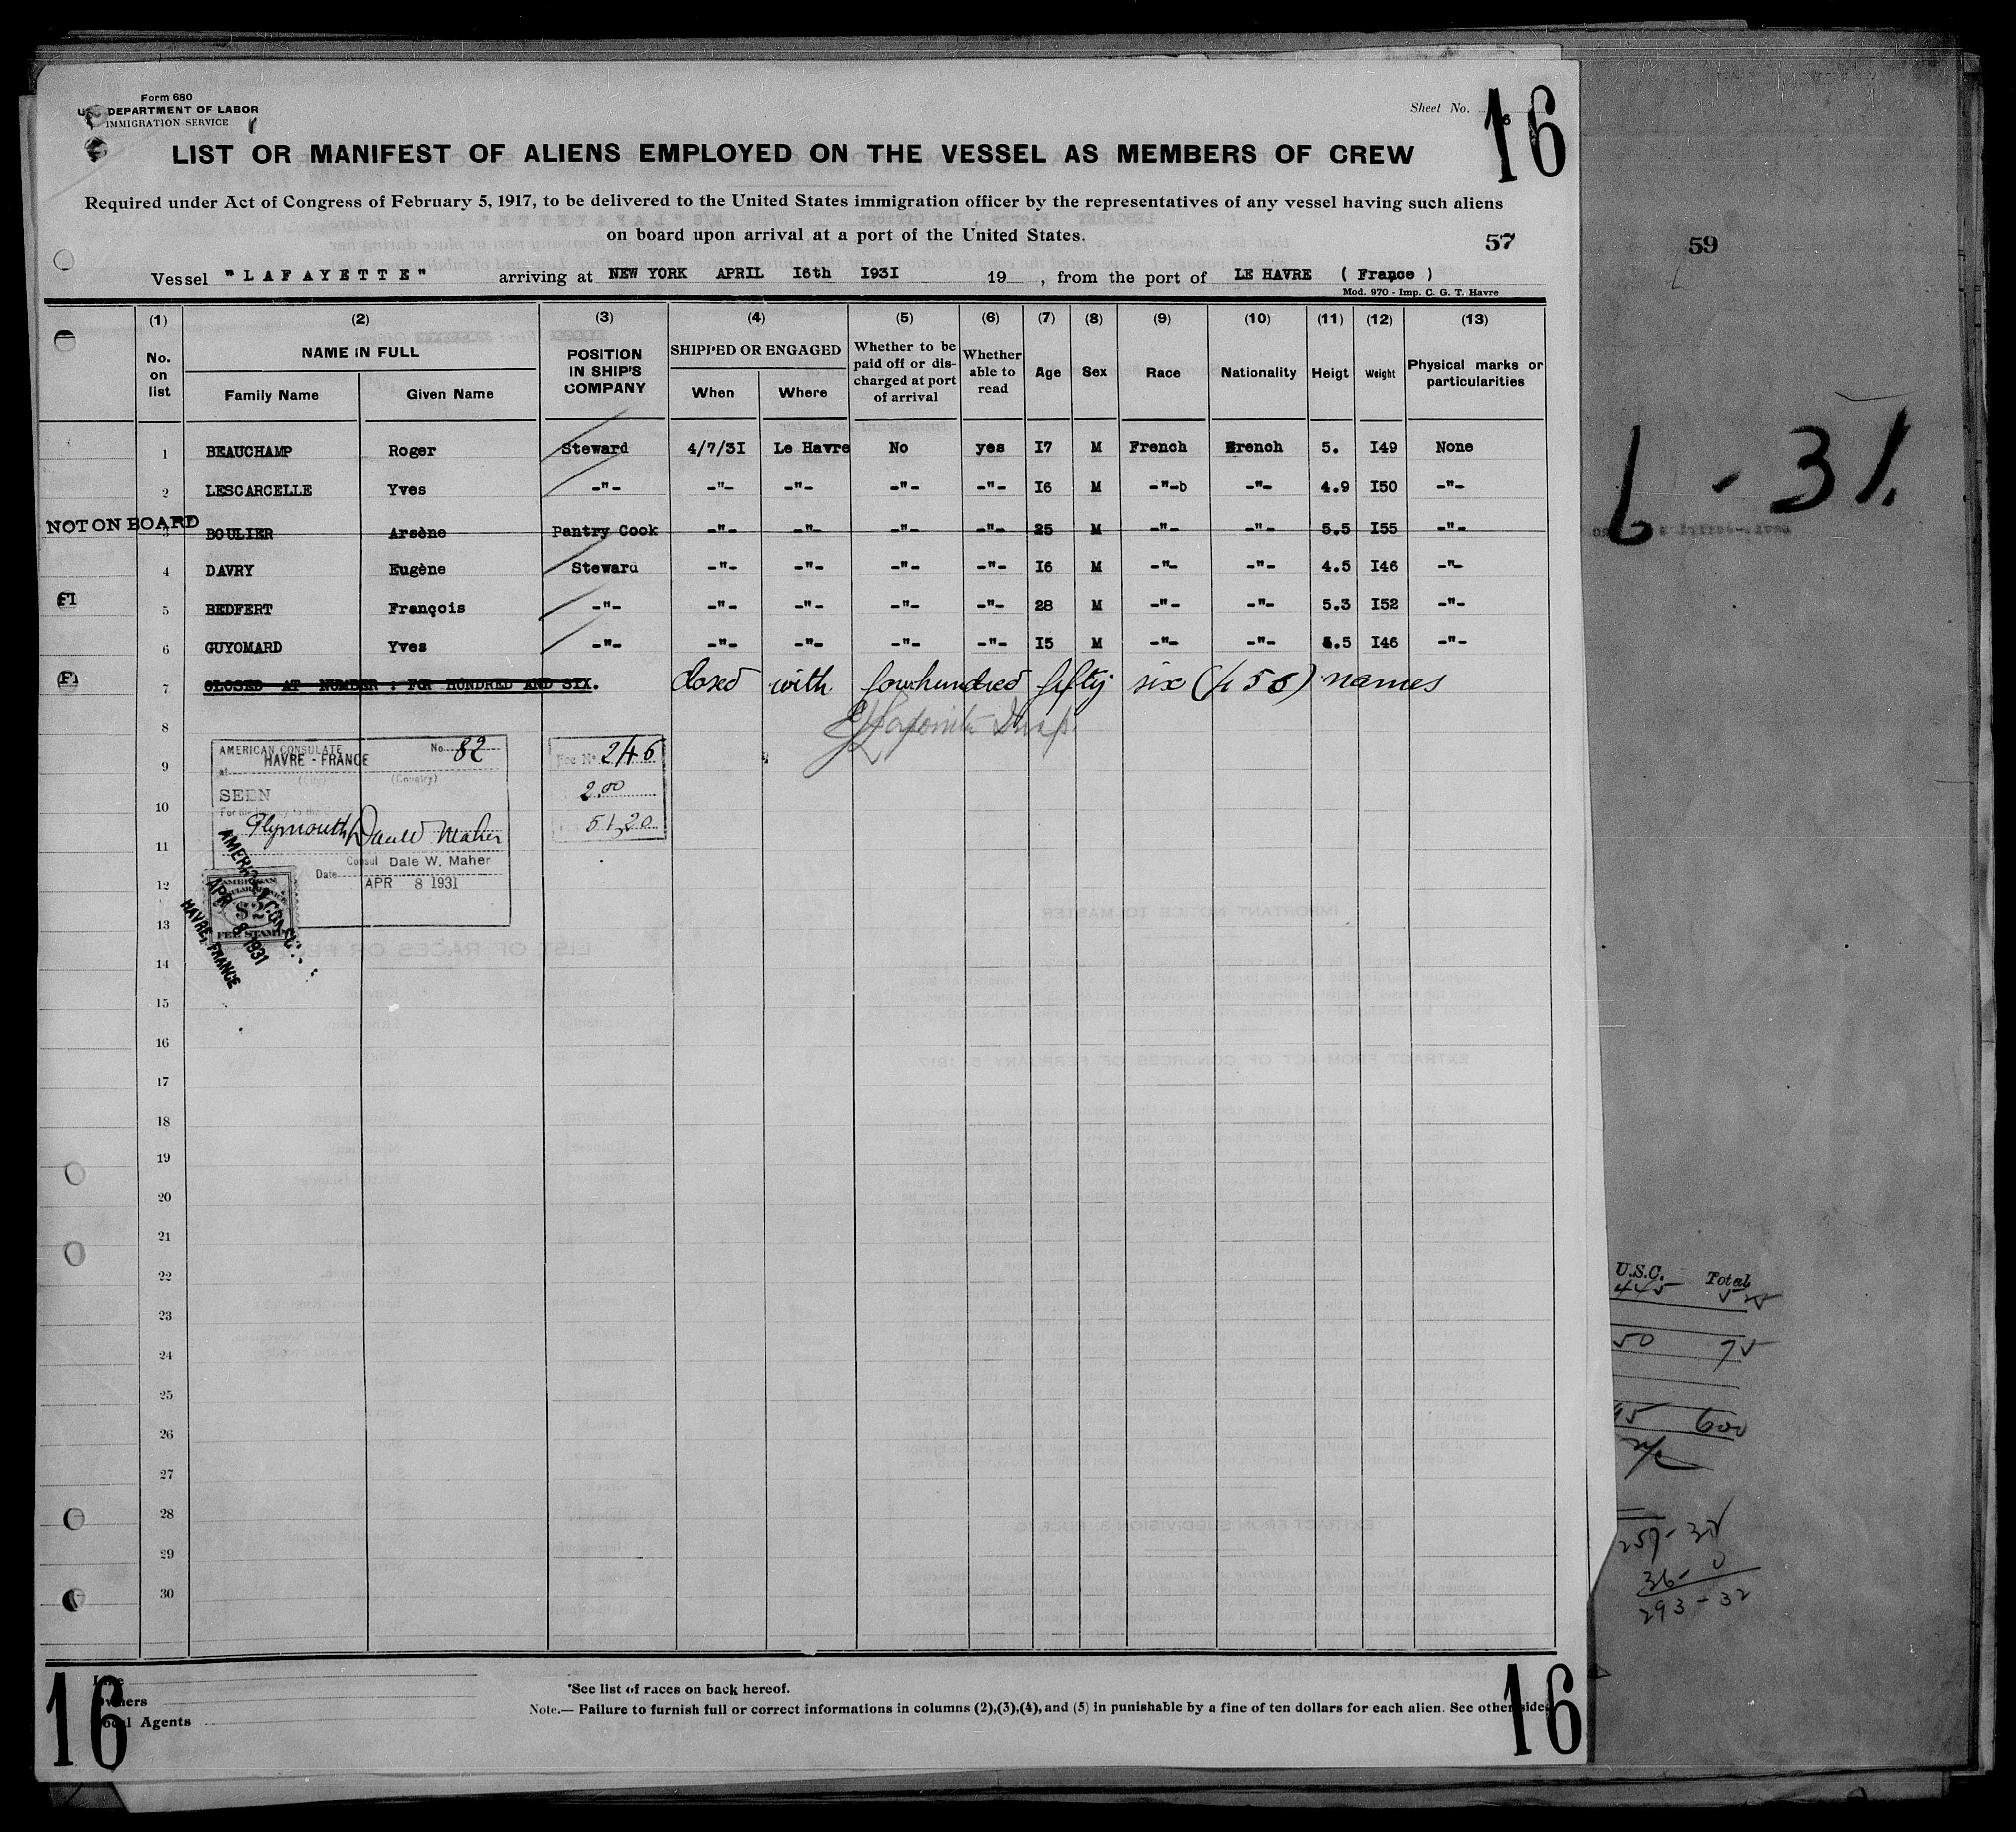 Form 680
DEPARTMENT OF LABOR
IMMIGRATION SERVICE
Sheet No.
16
LIST OR MANIFEST OF ALIENS EMPLOYED ON THE VESSEL AS MEMBERS OF CREW
Required under Act of Congress of February 5, 1917, to be delivered to the United States immigration officer by the representatives of any vessel having such aliens
on board upon arrival at a port of the United States.
57
59
Vessel "LAFAYETTE" arriving at NEW YORK APRIL I6th I93I 19 , from the port of LE HAVRE ( France )
Mod. 970 - Imp. C. G. T. Havre
(1) (2) (3) (4) (5) (6) (7) (8) (9) (10) (11) (12) (13)
No. on list NAME IN FULL Family Name Given Name POSITION IN SHIP'S COMPANY SHIPPED OR ENGAGED When Where Whether to be paid off or discharged at port of arrival Whether able to read Age Sex Race Nationality Heigt Weight Physical marks or particularities
1 BEAUCHAMP Roger Steward 4/7/3I Le Havre No yes I7 M French French 5. I49 None
2 LESCARCELLE Yves -"- -"- -"- -"- -"- I6 M -"-b -"- 4.9 I50 -"-
NOT ON BOARD
3 BOULIER Arsène Pantry Cook -"- -"- -"- -"- 25 M -"- -"- 5.5 I55 -"-
4 DAVRY Eugène Steward -"- -"- -"- -"- I6 M -"- -"- 4.5 I46 -"-
5 BEDFERT François -"- -"- -"- -"- -"- 28 M -"- -"- 5.3 I52 -"-
6 GUYOMARD Yves -"- -"- -"- -"- -"- I5 M -"- -"- .5 I46 -"-
7 CLOSED AT NUMBER : FOR HUNDRED AND SIX. closed with fourhundred fifty six (456) names
8
9
10
11
12
13
14
15
16
17
18
19
20
21
22
23
24
25
26
27
28
29
30
AMERICAN CONSULATE No. 82
at HAVRE - FRANCE
(City) (Country)
SEEN
For the journey to the
Plymouth
Consul Dale W. Maher
Date APR 8 1931
Fee No 246
2.00
51,20
AMERICAN
$2
FEE STAMP
APR 8 1931
HAVRE, FRANCE
6 - 31.
U.S.C. Total
445
50 75
600
257 - 32
36 - 0
293 - 32
Owners
Local Agents
*See list of races on back hereof.
Note.— Failure to furnish full or correct informations in columns (2),(3),(4), and (5) in punishable by a fine of ten dollars for each alien. See other side.
16
16